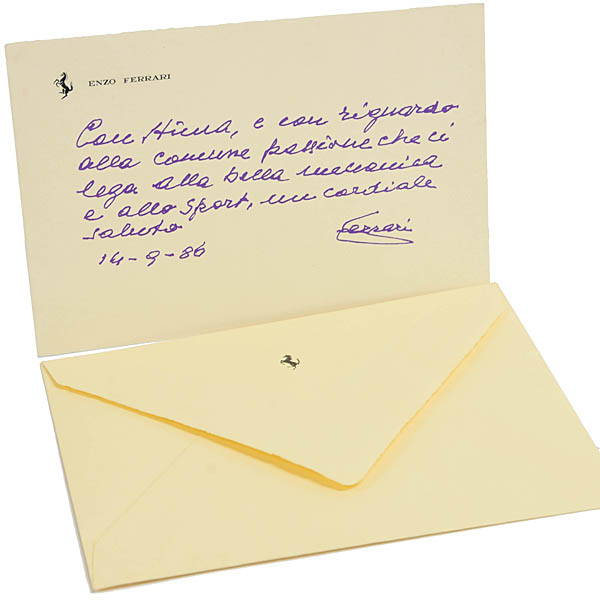 ENZO FERRARI
Con stima, e con riguardo
alla comune passione che ci
lega alla bella meccanica
e allo sport, un cordiale
saluto
Ferrari
14-9-86